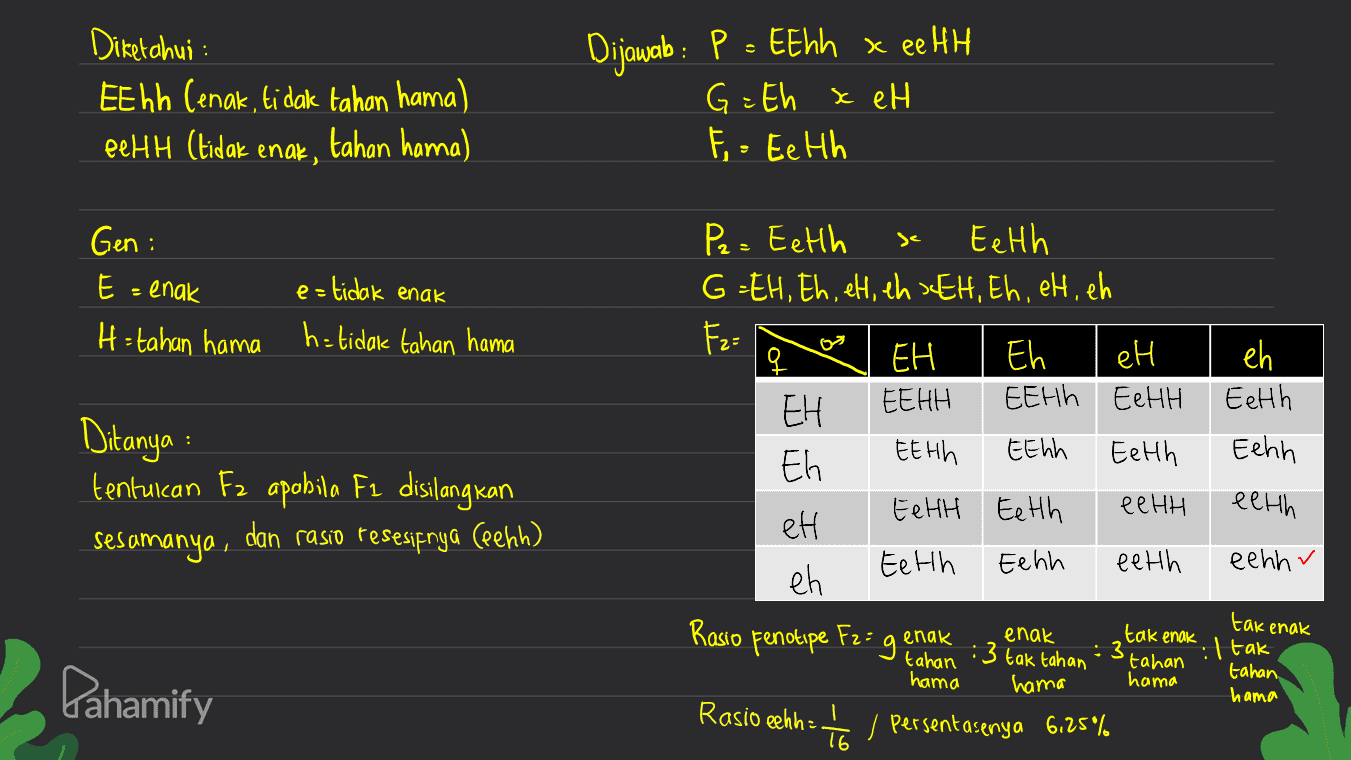 Diketahui :
EEhh (enak, tidak tahan hama)
eeHH (tidak enak, tahan hama)
Gen :
E = enak e = tidak enak
H = tahan hama h = tidak tahan hama
Ditanya :
tentukan F2 apabila F1 disilangkan
sesamanya, dan rasio resesifnya (eehh)
Dijawab : P = EEhh x eeHH
G = Eh x eH
F1 = EeHh
P2 = EeHh x EeHh
G = EH, Eh, eH, eh x EH, Eh, eH, eh
F2 =
♀ ♂ EH Eh eH eh
EH EEHH EEHh EeHH EeHh
Eh EEHh EEhh EeHh Eehh
eH EeHH EeHh eeHH eeHh
eh EeHh Eehh eeHh eehh ✓
Rasio fenotipe F2 = 9 enak tahan hama : 3 enak tak tahan hama : 3 tak enak tahan hama : 1 tak enak tak tahan hama
Rasio eehh = 1/16 / Persentasenya 6,25%
Pahamify